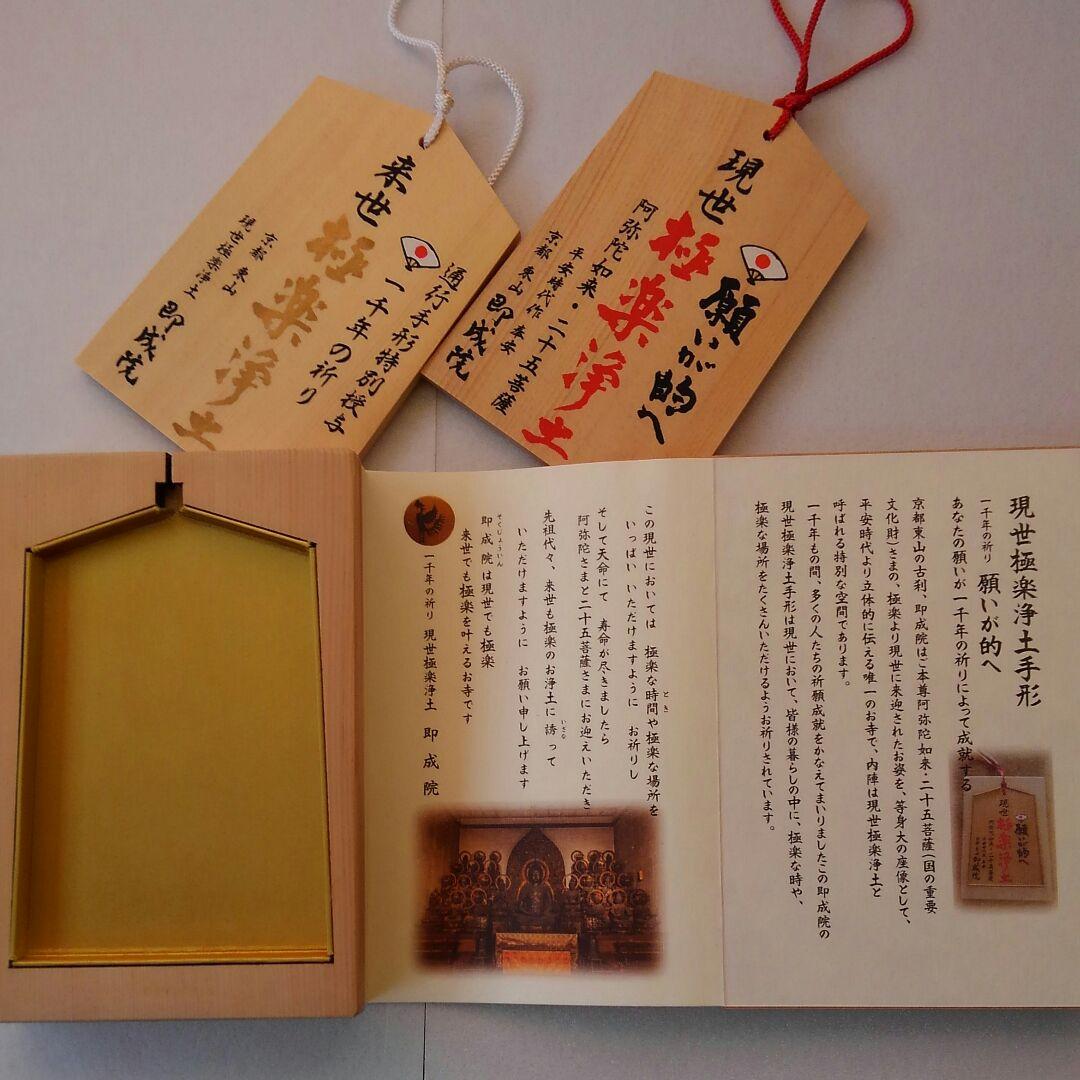 来世
極楽浄土
通行手形特別授与
一千年の祈り
京都 東山
現世極楽浄土
即成院
現世
極楽浄土
願いが的へ
阿弥陀如来・二十五菩薩
平安時代作 奉安
京都 東山
即成院
現世極楽浄土手形
一千年の祈り 願いが的へ
あなたの願いが一千年の祈りによって成就する
京都東山の古刹、即成院はご本尊阿弥陀如来・二十五菩薩(国の重要
文化財)さまの、極楽より現世に来迎されたお姿を、等身大の座像として、
平安時代より立体的に伝える唯一のお寺で、内陣は現世極楽浄土と
呼ばれる特別な空間であります。
一千年もの間、多くの人たちの祈願成就をかなえてまいりましたこの即成院の
現世極楽浄土手形は現世において、皆様の暮らしの中に、極楽な時や、
極楽な場所をたくさんいただけるようお祈りされています。
現世
極楽浄土
願いが的へ
即成院
この現世においては 極楽な時間や極楽な場所を
とき
いっぱい いただけますように お祈りし
そして天命にて 寿命が尽きましたら
阿弥陀さまと二十五菩薩さまにお迎えいただき
先祖代々、来世も極楽のお浄土に誘って
いざな
いただけますように お願い申し上げます
そくじょういん
即成院は現世でも極楽
来世でも極楽を叶えるお寺です
一千年の祈り 現世極楽浄土 即成院